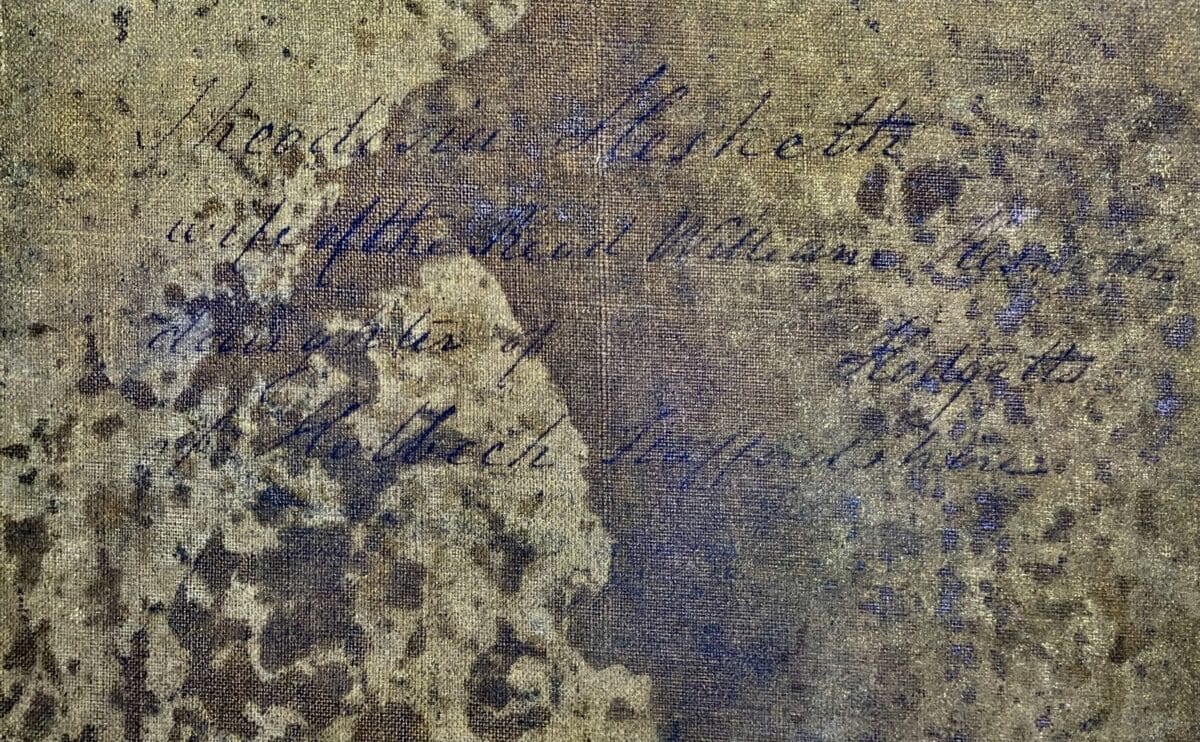 Theodosia Hesketh
wife of the Revd William Hesketh
daughter of Hodgetts
of Holbech Staffordshire